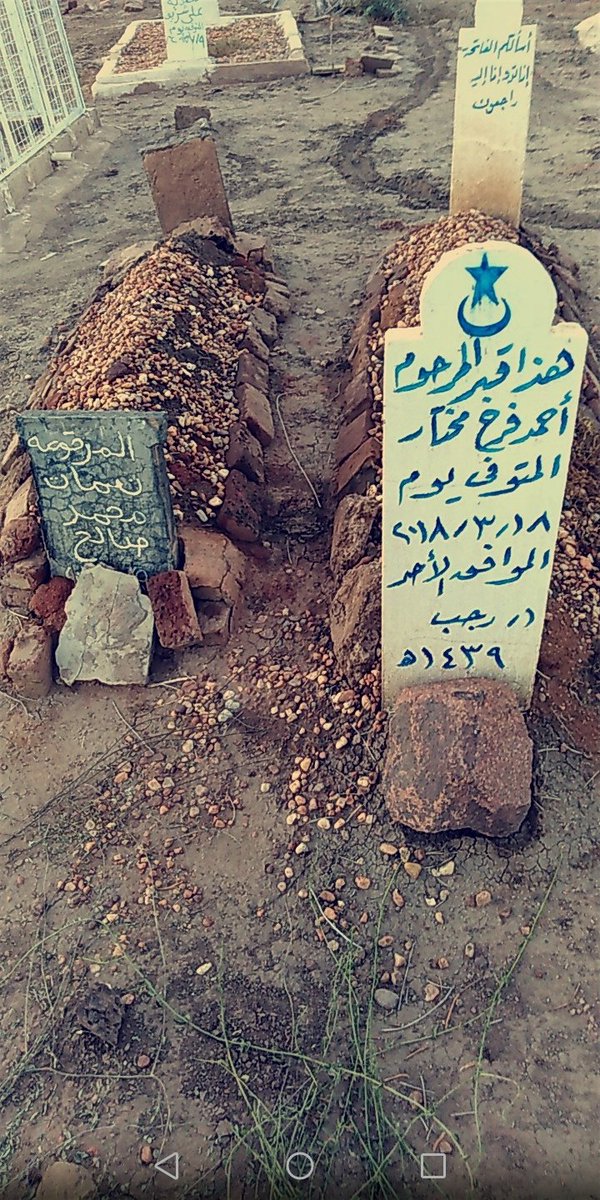 أسألكم الفاتحة
إنا لله وإنا إليه
راجعون
هذا قبر المرحوم
أحمد فرح مختار
المتوفي يوم
٢٠١٨/٣/١٨
الموافق الأحد
١ رجب
١٤٣٩ه
المرحومه
نعمات
محمد
صالح